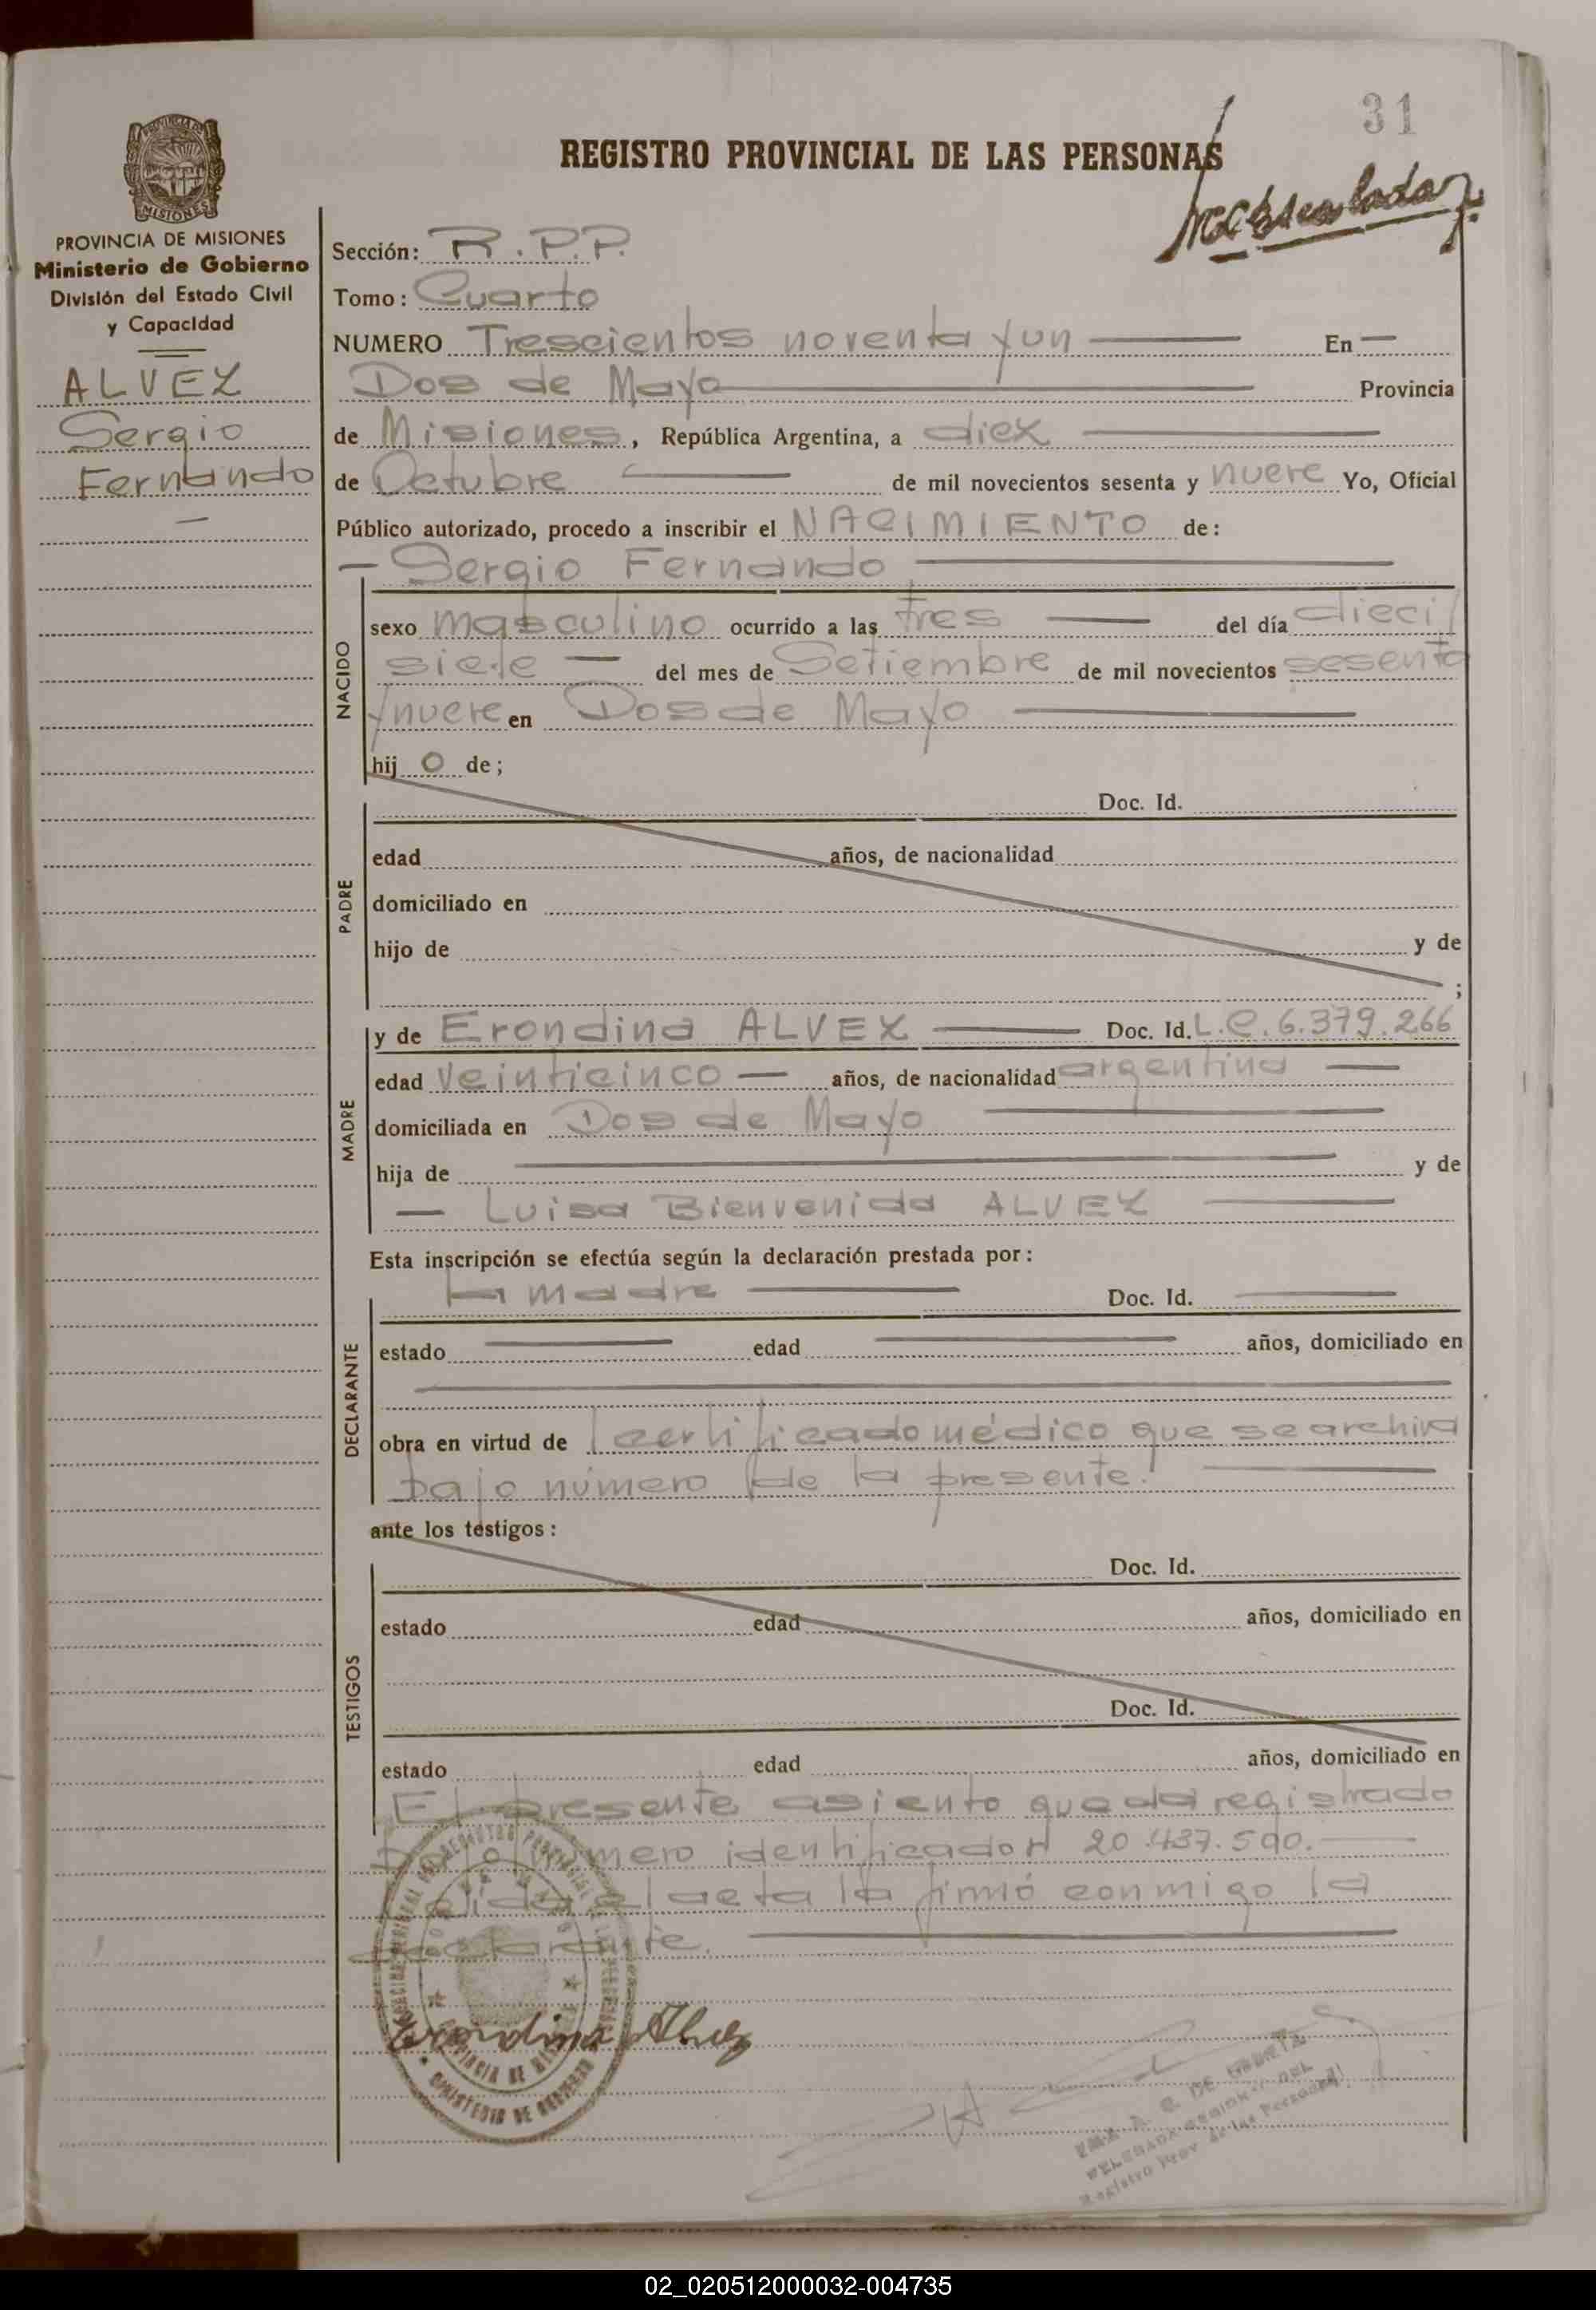 31
REGISTRO PROVINCIAL DE LAS PERSONAS
PROVINCIA DE
MISIONES
PROVINCIA DE MISIONES
Ministerio de Gobierno
División del Estado Civil
y Capacidad
ALVEZ
Sergio
Fernando
—
Sección: R.P.P.
Tomo: Cuarto
NUMERO Trescientos noventa y un — En —
Dos de Mayo — Provincia
de Misiones, República Argentina, a diez —
de Octubre — de mil novecientos sesenta y nueve Yo, Oficial
Público autorizado, procedo a inscribir el NACIMIENTO de:
— Sergio Fernando —
NACIDO
sexo masculino ocurrido a las tres — del día dieci
siete — del mes de Setiembre de mil novecientos sesenta
y nueve en Dos de Mayo —
hij o de;
PADRE
Doc. Id.
edad años, de nacionalidad
domiciliado en
hijo de y de
;
MADRE
y de Erondina ALVEZ — Doc. Id. L.C. 6.379.266
edad veinticinco — años, de nacionalidad argentina —
domiciliada en Dos de Mayo —
hija de — y de
— Luisa Bienvenida ALVEZ —
Esta inscripción se efectúa según la declaración prestada por:
DECLARANTE
la madre — Doc. Id. —
estado — edad — años, domiciliado en
—
obra en virtud de certificado médico que se archiva
bajo número de la presente. —
ante los testigos:
TESTIGOS
Doc. Id.
estado edad años, domiciliado en
Doc. Id.
estado edad años, domiciliado en
El presente asiento queda registrado
bajo número identificador 20.437.590. —
el acta la firmó conmigo la
declarante. —
Erondina Alvez
MINISTERIO DE GOBIERNO
DE
Registro Prov. de las Personas
02_020512000032-004735